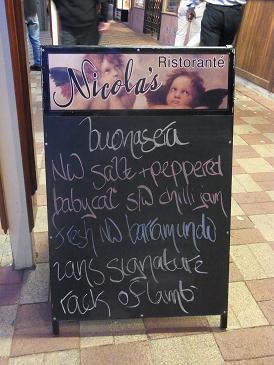 Nicola's Ristoranté
buonasera
NW salt + peppered
babycal s/w chilli jam
fresh NW barramundi
signature
rack of lamb